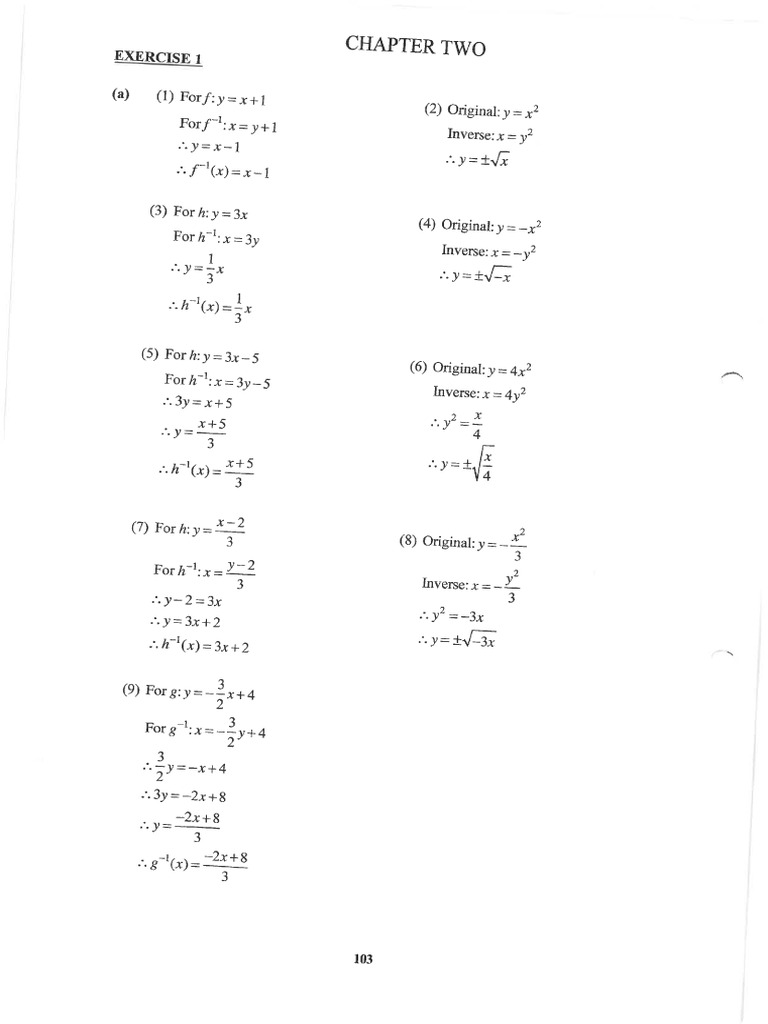 CHAPTER TWO
EXERCISE 1
(a) (1) For f: y = x + 1
For f⁻¹: x = y + 1
∴ y = x − 1
∴ f⁻¹(x) = x − 1
(2) Original: y = x²
Inverse: x = y²
∴ y = ±√x
(3) For h: y = 3x
For h⁻¹: x = 3y
∴ y = 1/3 x
∴ h⁻¹(x) = 1/3 x
(4) Original: y = −x²
Inverse: x = −y²
∴ y = ±√−x
(5) For h: y = 3x − 5
For h⁻¹: x = 3y − 5
∴ 3y = x + 5
∴ y = (x + 5)/3
∴ h⁻¹(x) = (x + 5)/3
(6) Original: y = 4x²
Inverse: x = 4y²
∴ y² = x/4
∴ y = ±√(x/4)
(7) For h: y = (x − 2)/3
For h⁻¹: x = (y − 2)/3
∴ y − 2 = 3x
∴ y = 3x + 2
∴ h⁻¹(x) = 3x + 2
(8) Original: y = −x²/3
Inverse: x = −y²/3
∴ y² = −3x
∴ y = ±√−3x
(9) For g: y = −3/2 x + 4
For g⁻¹: x = −3/2 y + 4
∴ 3/2 y = −x + 4
∴ 3y = −2x + 8
∴ y = (−2x + 8)/3
∴ g⁻¹(x) = (−2x + 8)/3
103